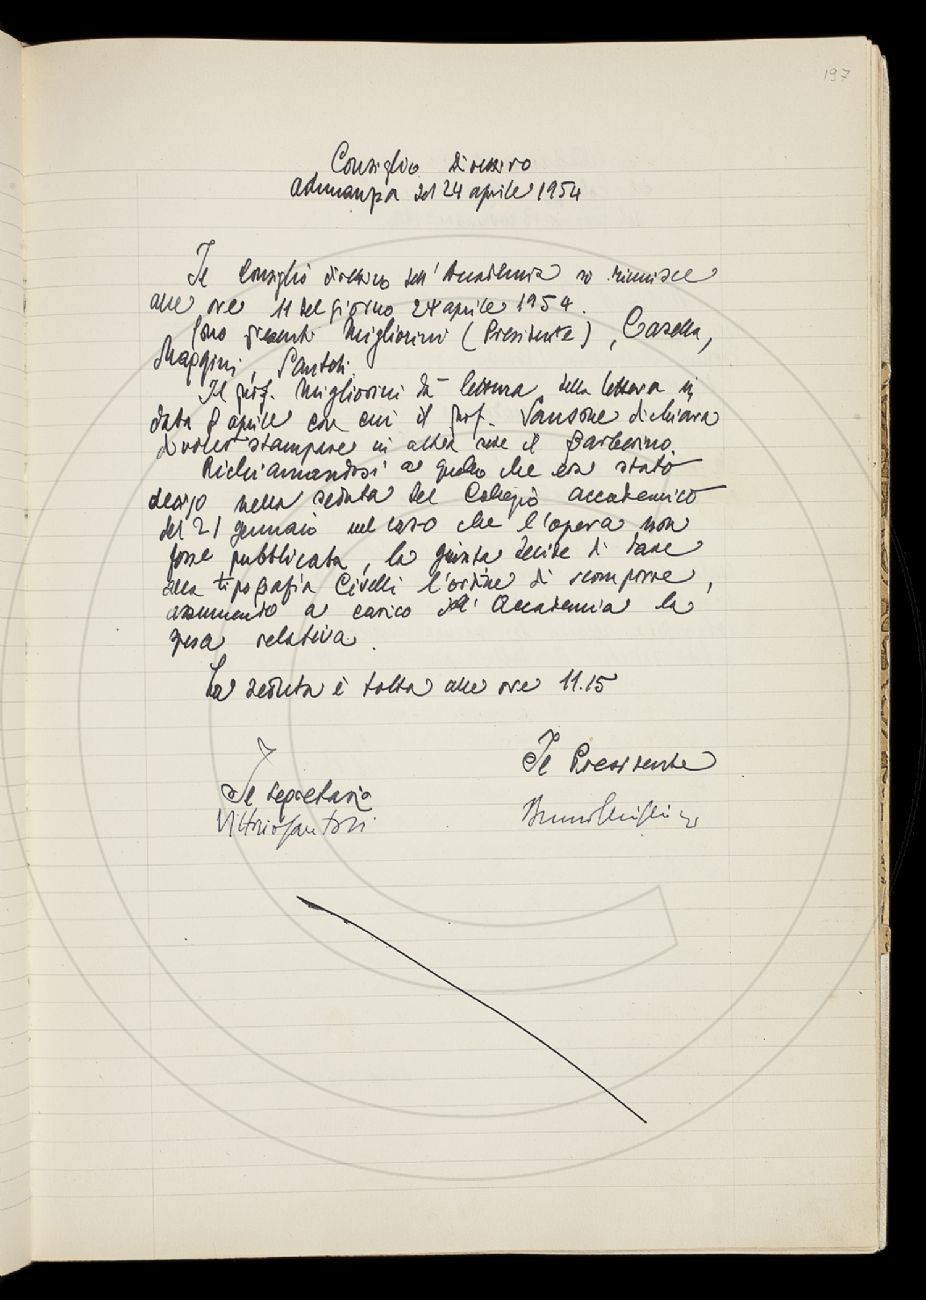 197
Consiglio direttivo
Adunanza del 24 aprile 1954
Il Consiglio direttivo dell'Accademia si riunisce
alle ore 11 del giorno 24 aprile 1954.
Sono presenti Migliorini (Presidente), Casella,
Maggini, Santoli.
Il prof. Migliorini dà lettura della lettera in
data 8 aprile con cui il prof. Sansone dichiara
di voler stampare in altra sede il Barberino.
Richiamandosi a quello che era stato
deciso nella seduta del Collegio accademico
del 21 gennaio nel caso che l'opera non
fosse pubblicata, la giunta decide di dare
alla tipografia Civelli l'ordine di scomporre,
assumendo a carico dell'Accademia la
spesa relativa.
La seduta è tolta alle ore 11.15
Il Presidente
Il segretario
Vittorio Santoli
Bruno Migliorini